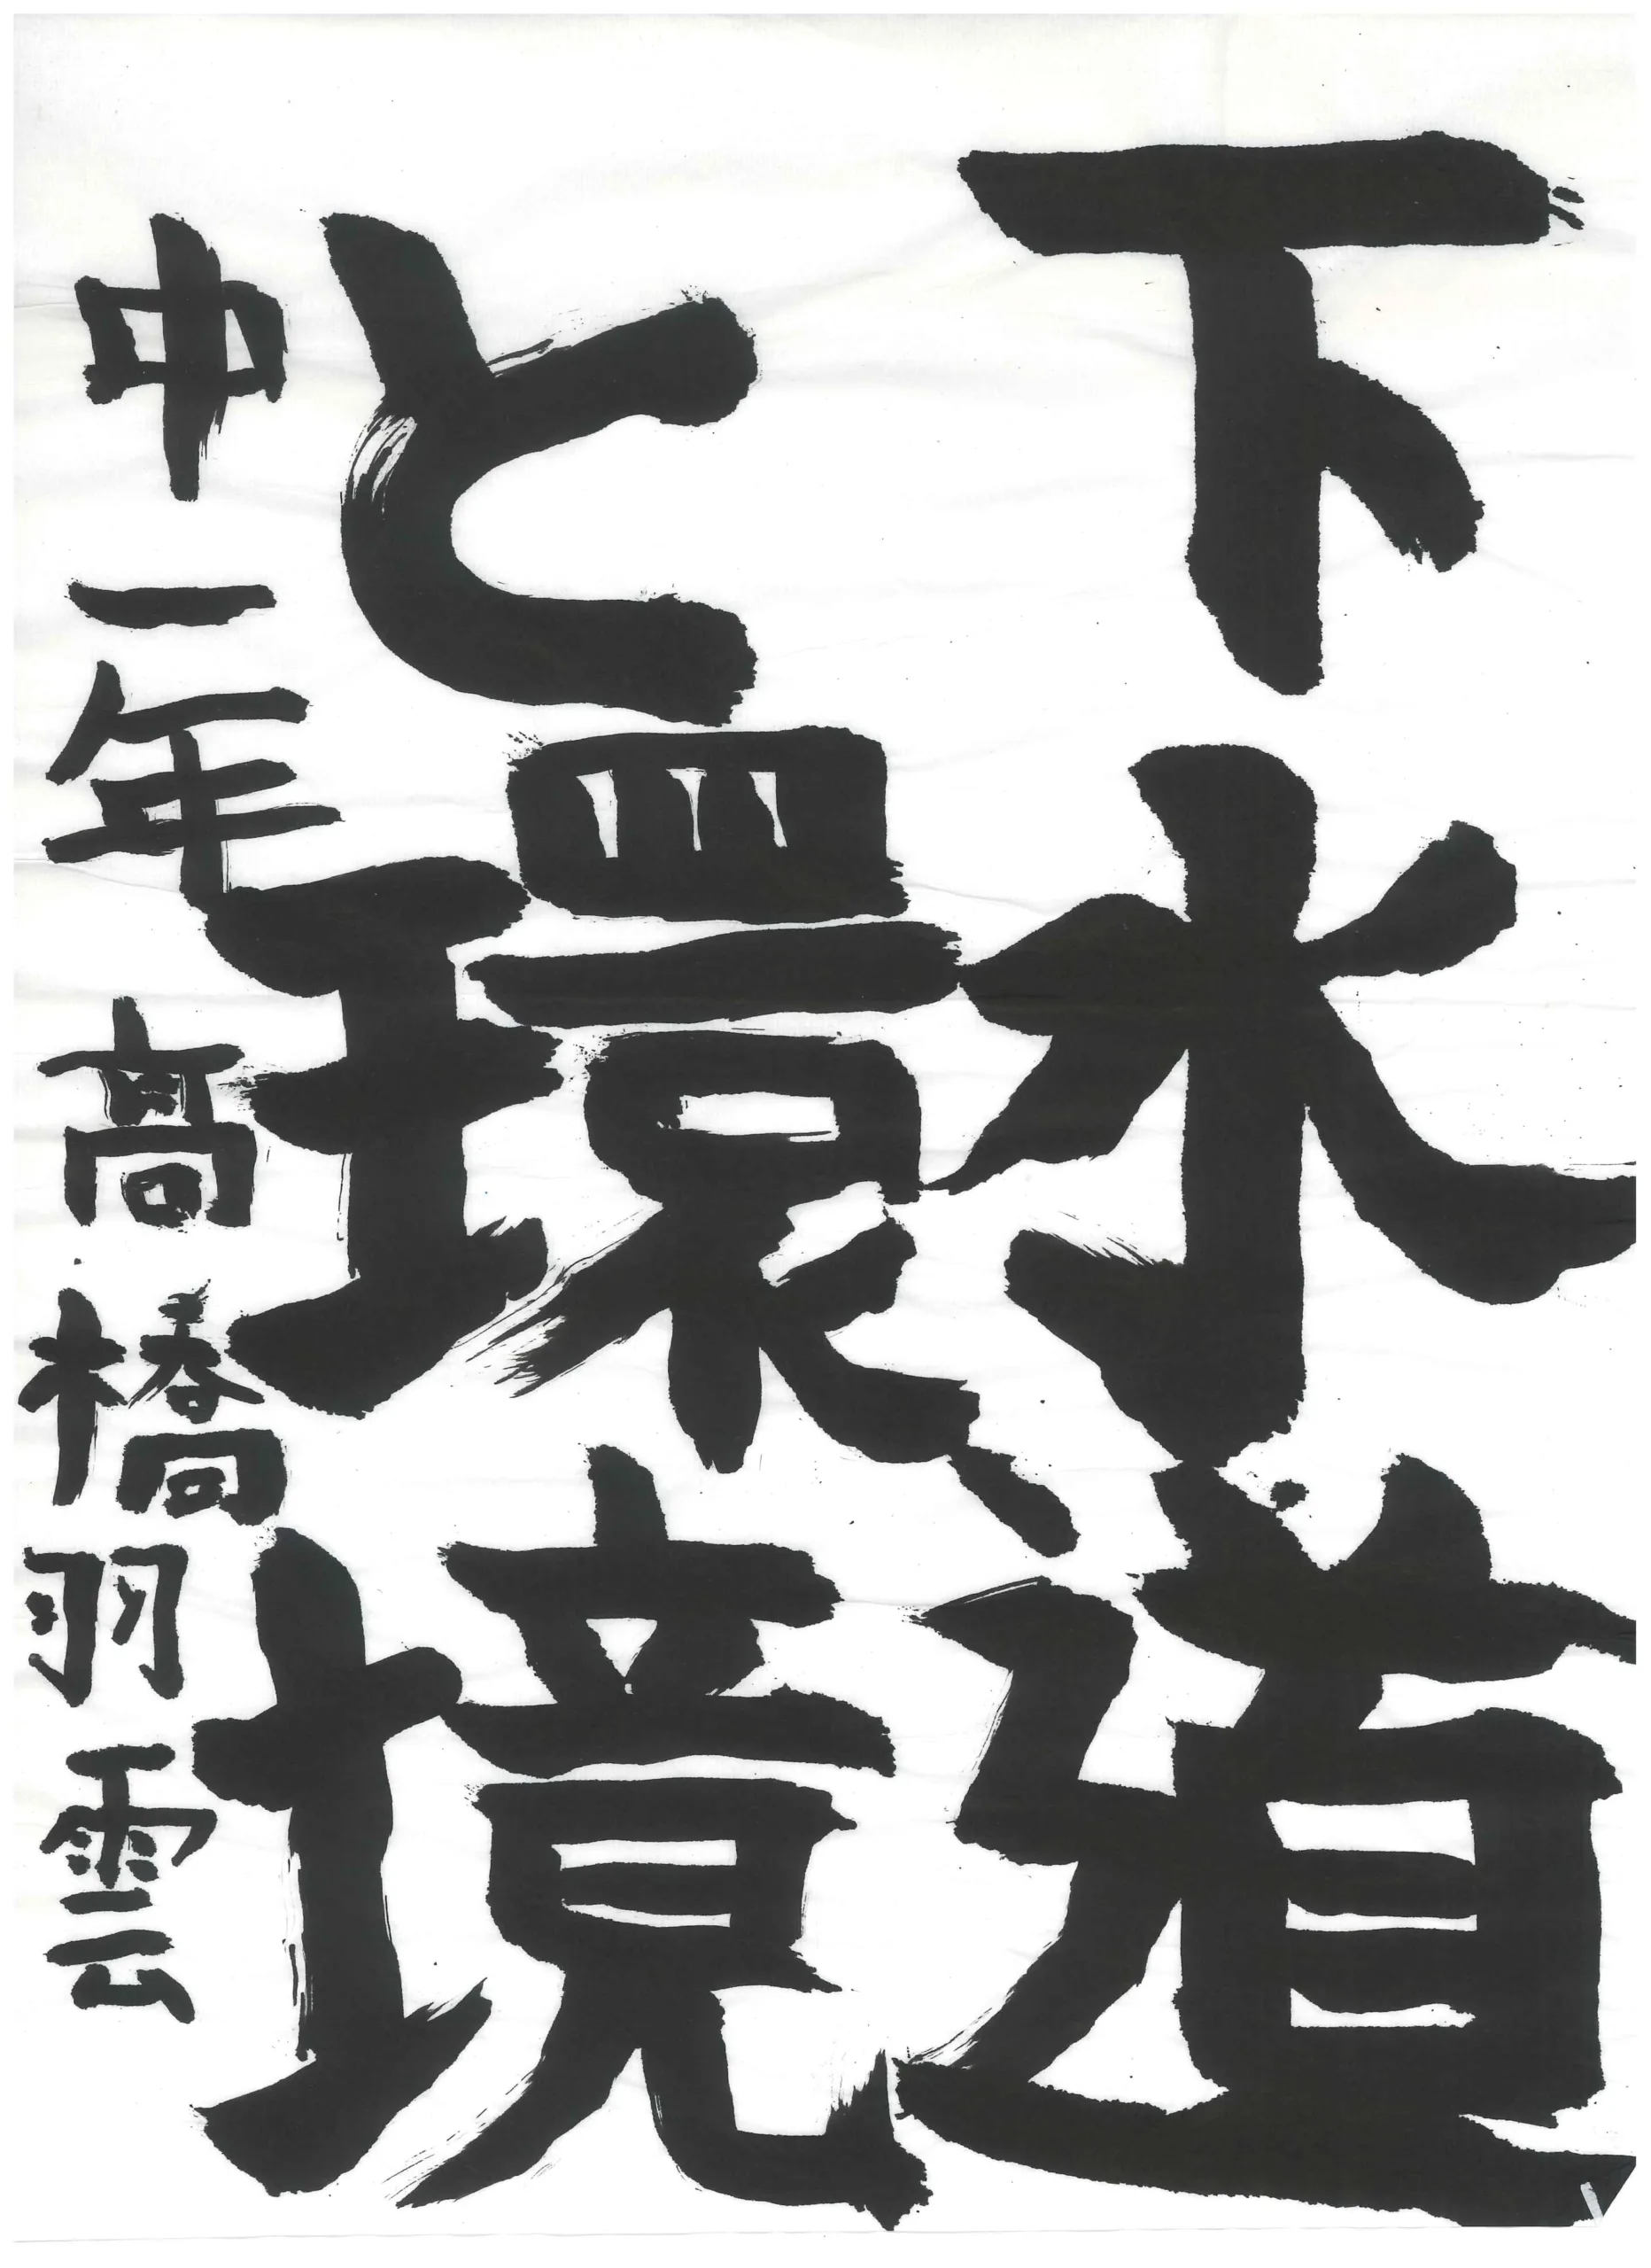 下水道
と環境
中一年 高橋羽雲